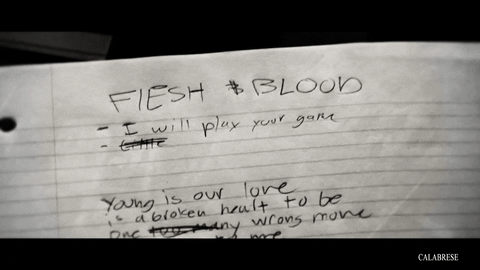 FlESH & BLOOD
- I will play your game
-
Young is our love
is a broken heart to be
One too many wrong move
me
CALABRESE